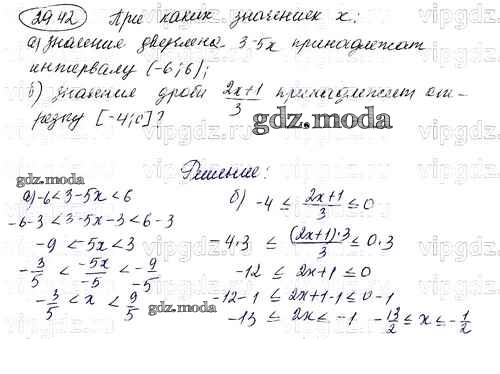 29.42. При каких значениях x:
а) значение двучлена 3-5x принадлежат
интервалу (-6; 6);
б) значение дроби (2x+1)/3 принадлежит от-
резку [-4; 0]?
gdz.moda
Решение:
gdz.moda
а) -6 < 3-5x < 6
-6-3 < 3-5x-3 < 6-3
-9 < -5x < 3
-3/5 < -5x/-5 < -9/-5
-3/5 < x < 9/5
gdz.moda
б) -4 ≤ (2x+1)/3 ≤ 0
-4·3 ≤ ((2x+1)·3)/3 ≤ 0·3
-12 ≤ 2x+1 ≤ 0
-12-1 ≤ 2x+1-1 ≤ 0-1
-13 ≤ 2x ≤ -1 -13/2 ≤ x ≤ -1/2
vipgdz.com